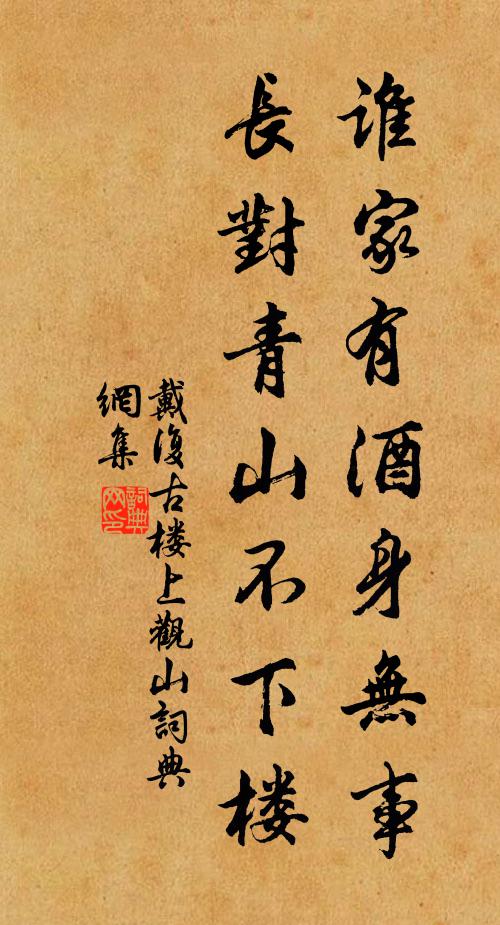 誰家有酒身無事
長對青山不下楼
戴復古楼上觀山詞典
網集
詞典
网印